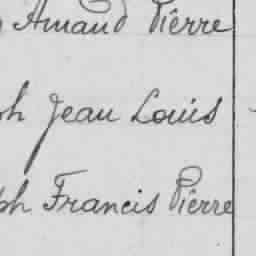 Amand Pierre
ph Jean Louis
ph Francis Pierre